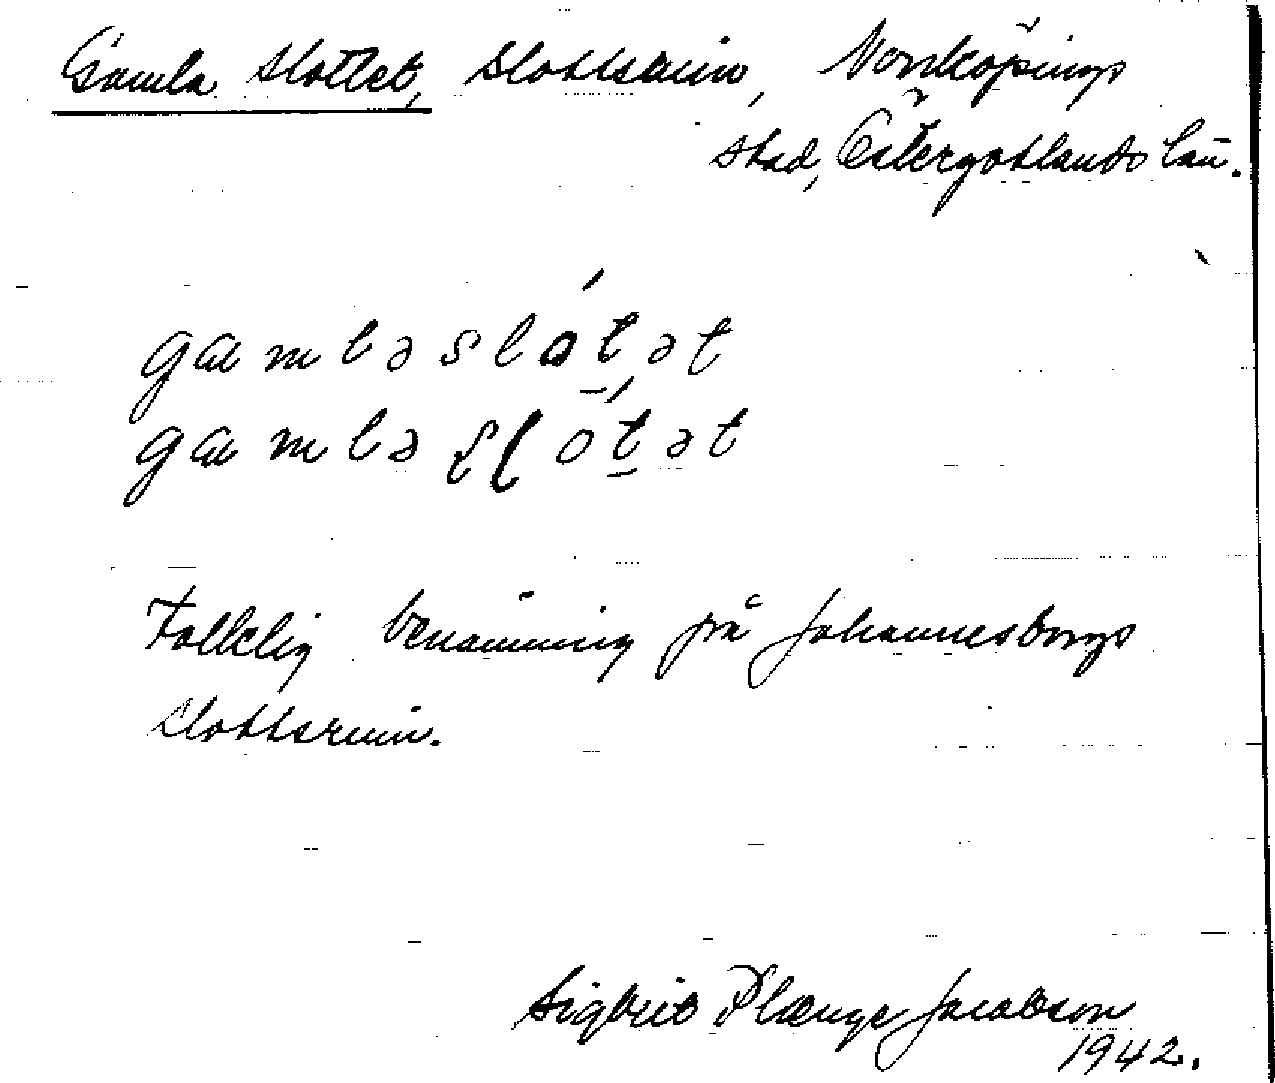 Gamla Slottet, Slottsruin, Norrköpings
stad, Östergötlands län.
gamləslót̠ət
gamləʂɭót̠ət
Folklig benämning på Johannesborgs
slottsruin.
Sigbrit Plænge Jacobson
1942.